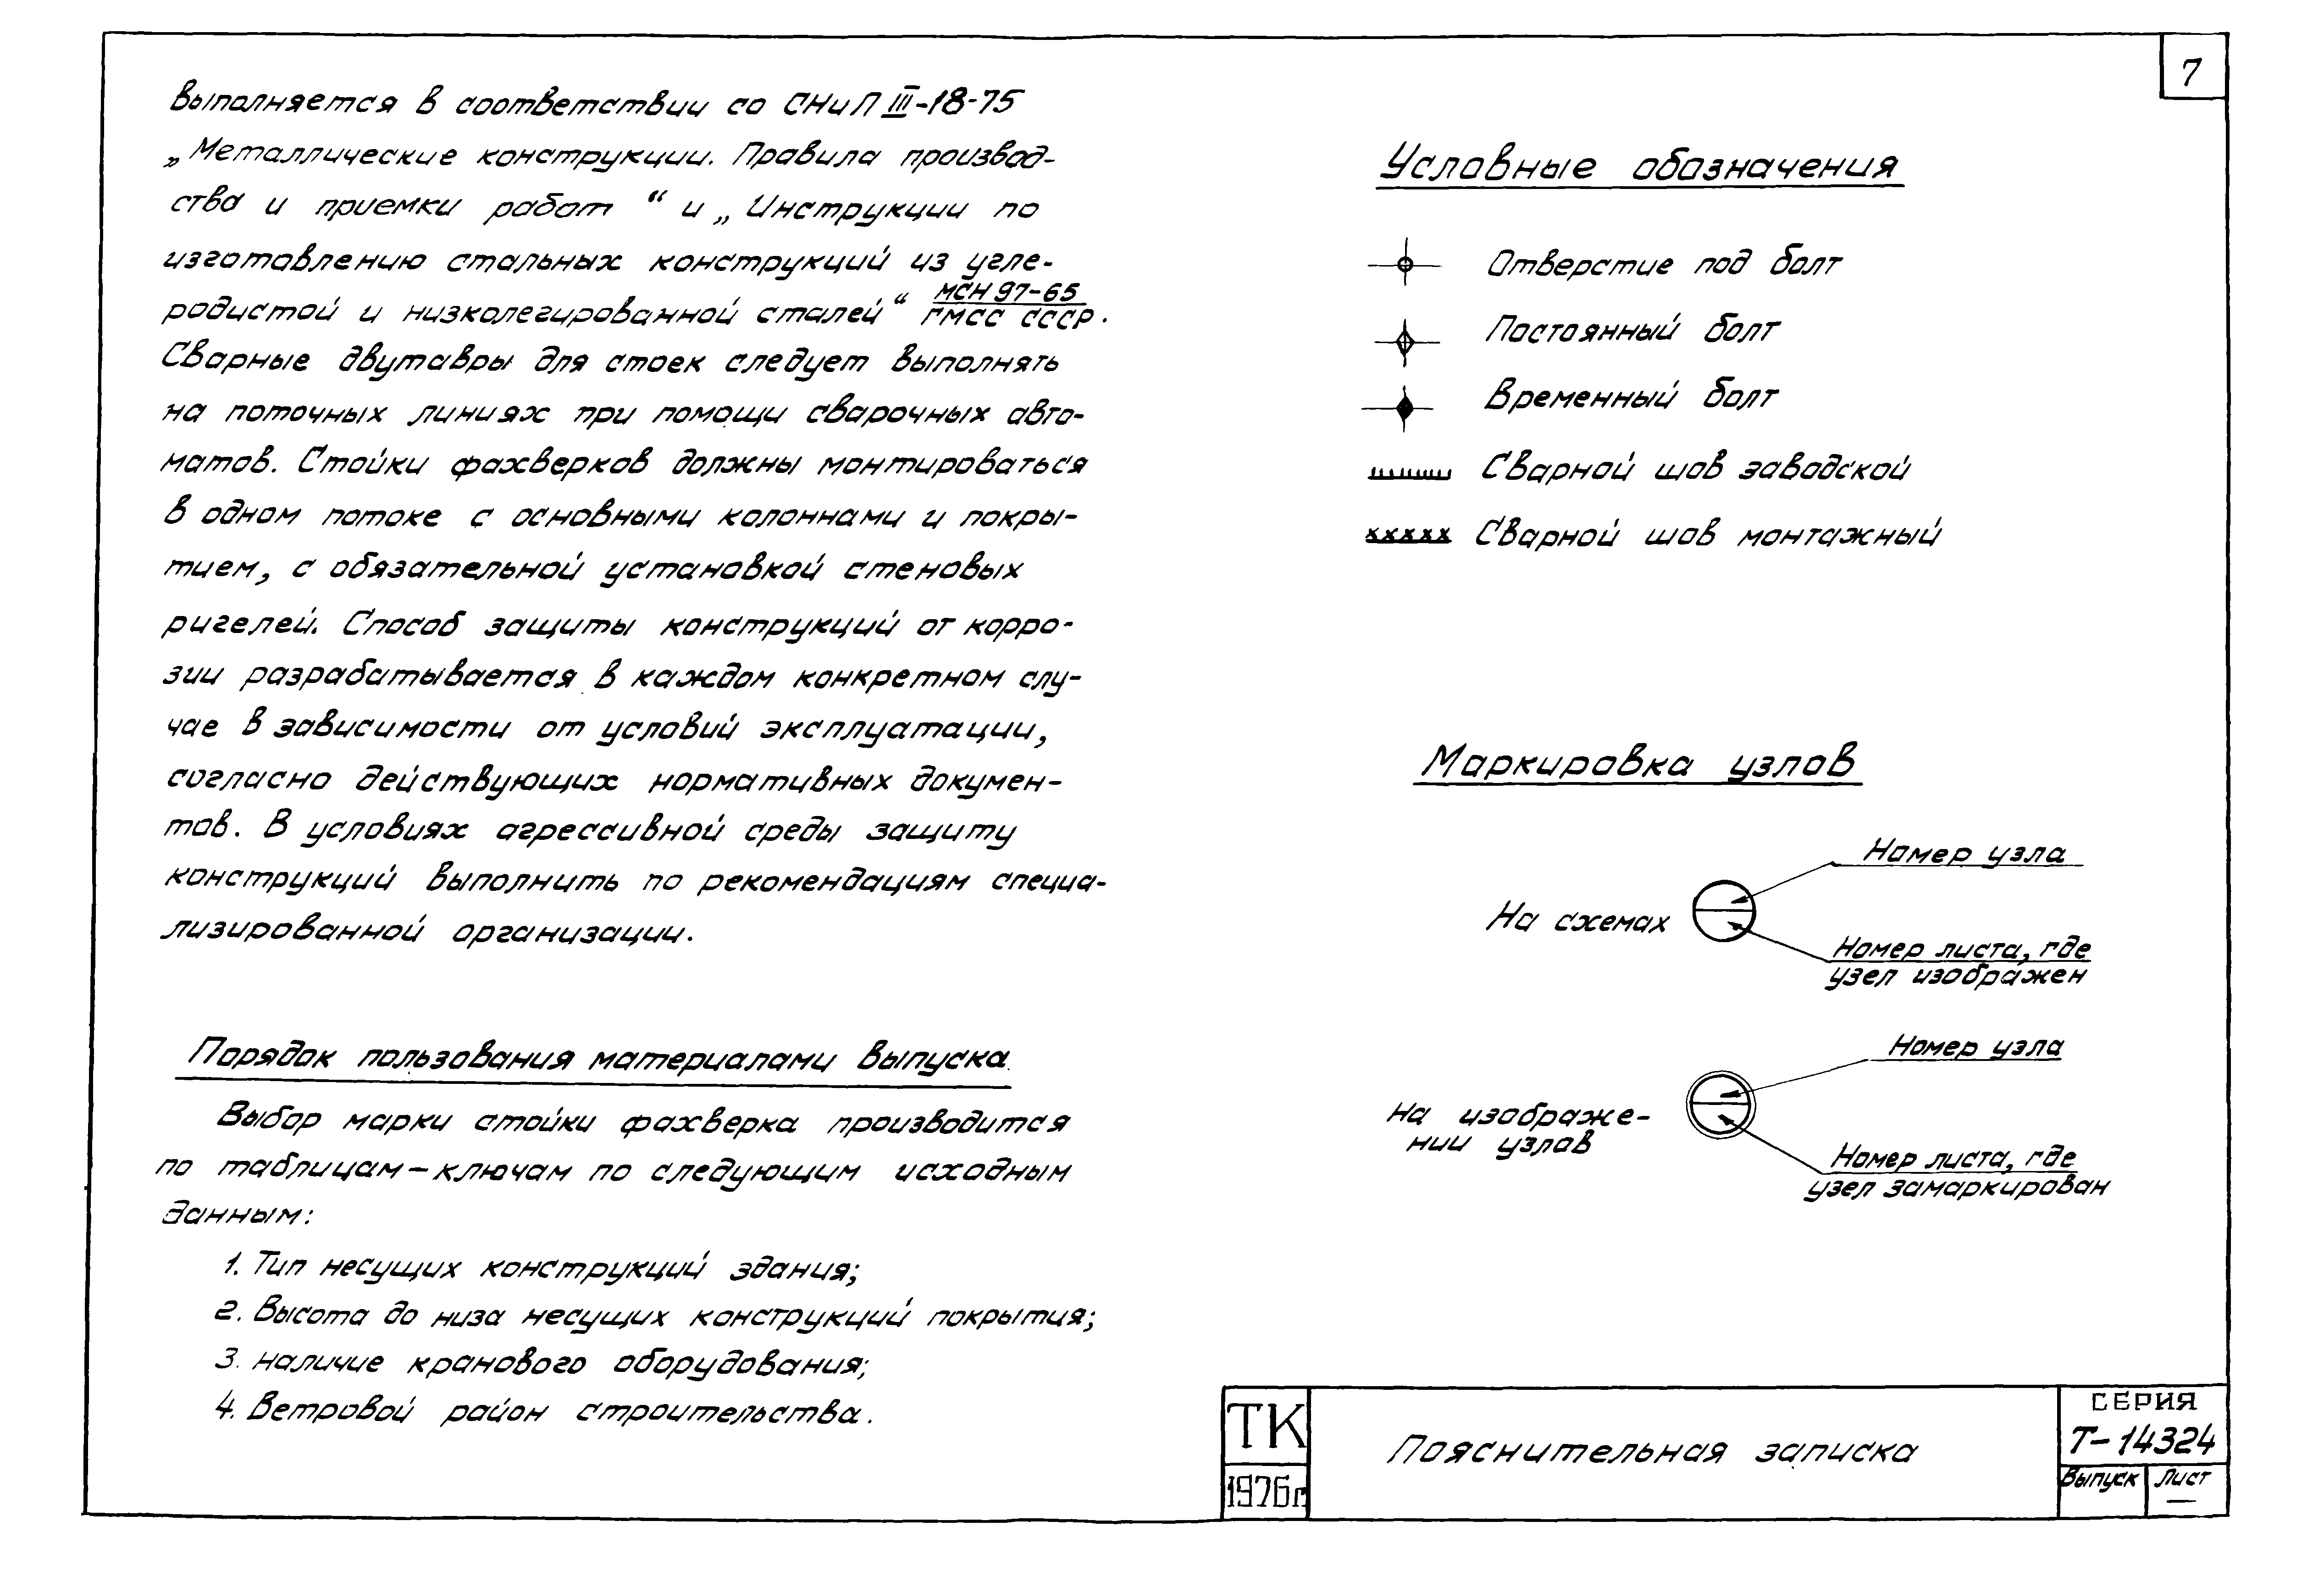 7
выполняется в соответствии со СНиП III-18-75
„Металлические конструкции. Правила производ-
ства и приемки работ“ и „Инструкции по
изготовлению стальных конструкций из угле-
родистой и низколегированной сталей“ МСН 97-65
ГМСС СССР.
Сварные двутавры для стоек следует выполнять
на поточных линиях при помощи сварочных авто-
матов. Стойки фахверков должны монтироваться
в одном потоке с основными колоннами и покры-
тием, с обязательной установкой стеновых
ригелей. Способ защиты конструкций от корро-
зии разрабатывается в каждом конкретном слу-
чае в зависимости от условий эксплуатации,
согласно действующих нормативных докумен-
тов. В условиях агрессивной среды защиту
конструкций выполнить по рекомендациям специа-
лизированной организации.
Порядок пользования материалами выпуска
Выбор марки стойки фахверка производится
по таблицам-ключам по следующим исходным
данным:
1. Тип несущих конструкций здания;
2. Высота до низа несущих конструкций покрытия;
3. наличие кранового оборудования;
4. Ветровой район строительства.
Условные обозначения
Отверстие под болт
Постоянный болт
Временный болт
Сварной шов заводской
Сварной шов монтажный
Маркировка узлов
Номер узла
На схемах
Номер листа, где
узел изображен
Номер узла
На изображе-
нии узлов
Номер листа, где
узел замаркирован
ТК
1976г
Пояснительная записка
СЕРИЯ
Т-14324
Выпуск
Лист
—